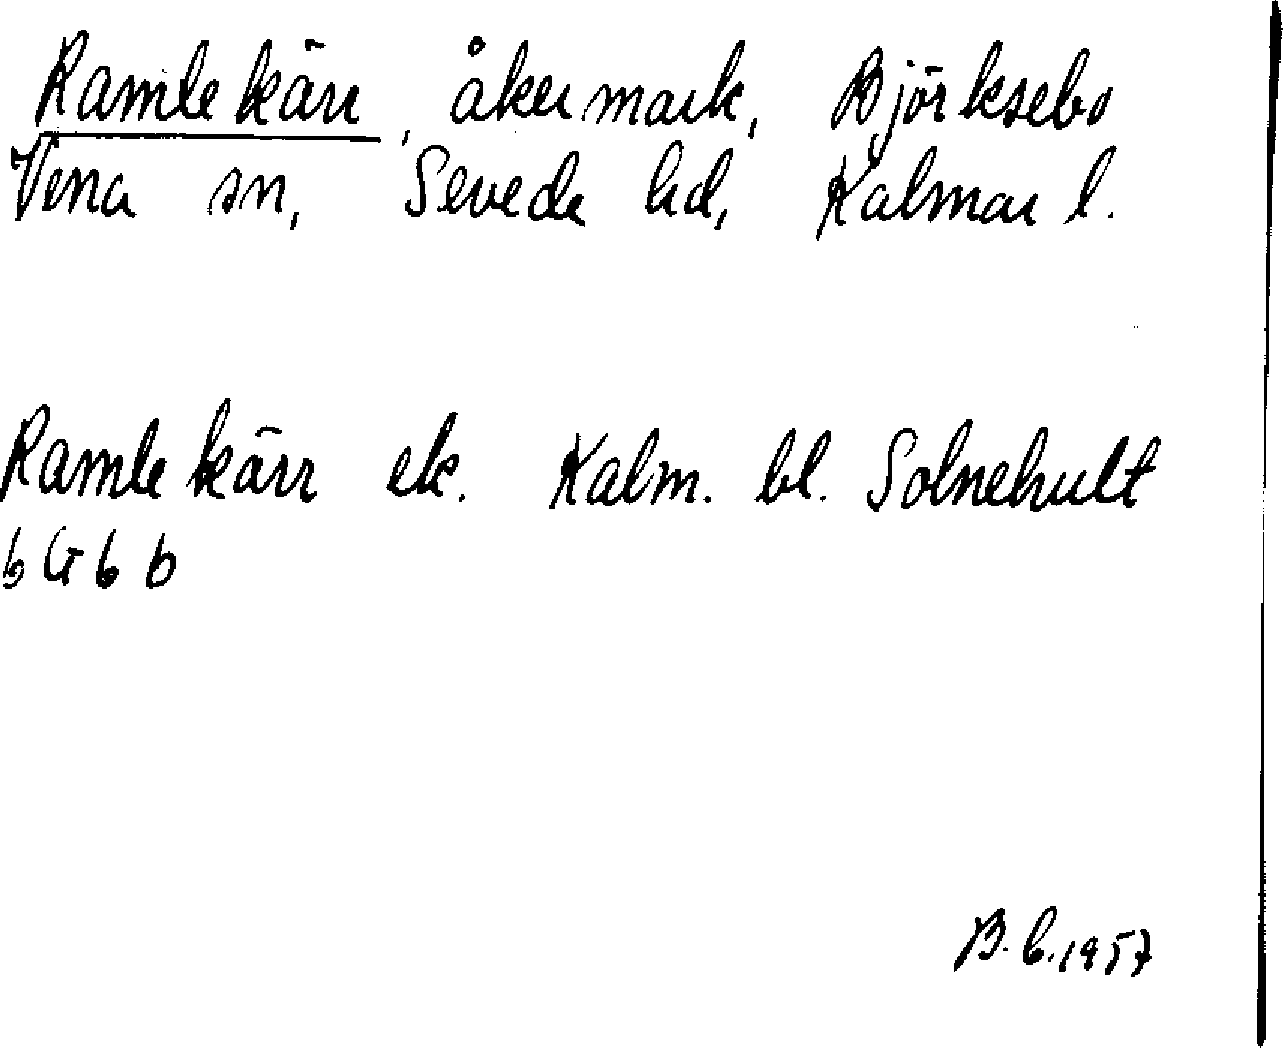 Ramlekärr, åkermark, Björksebo
Vena sn, Sevede hd, Kalmar l.
Ramlekärr ek. Kalm. bl. Solnehult
6G6b
B.C.1957